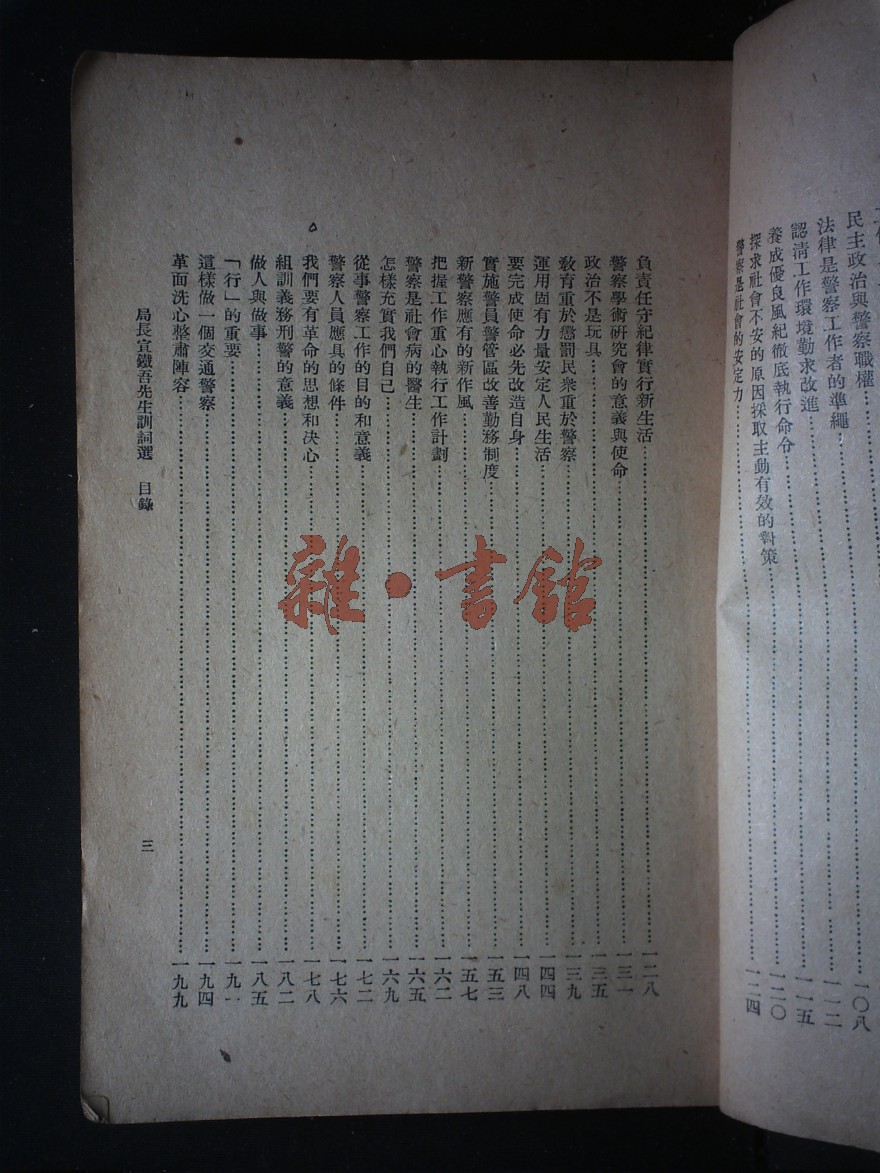 民主政治與警察職權……一〇八
法律是警察工作者的準繩……一一二
認清工作環境勤求改進……一一五
養成優良風紀徹底執行命令……一二〇
探求社會不安的原因採取主動有效的對策
警察是社會的安定力……一二四
負責任守紀律實行新生活……一二八
警察學術研究會的意義與使命……一三一
政治不是玩具……一三五
教育重於懲罰民衆重於警察……一三九
運用固有力量安定人民生活……一四四
要完成使命必先改造自身……一四八
實施警員警管區改善勤務制度……一五三
新警察應有的新作風……一五七
把握工作重心執行工作計劃……一六二
警察是社會病的醫生……一六五
怎樣充實我們自己……一六九
從事警察工作的目的和意義……一七二
警察人員應具的條件……一七六
我們要有革命的思想和決心……一七八
組訓義務刑警的意義……一八二
做人與做事……一八五
「行」的重要……一九一
這樣做一個交通警察……一九四
革面洗心整肅陣容……一九九
局長宣鐵吾先生訓詞選 目錄
三
雜·書館